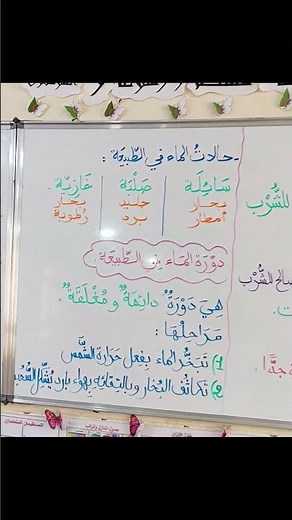 - حالات الماء في الطّبيعة :
سَائِلَة | صَلْبَة | غَازِيَّة.
بحار | جليد | بخار
أمطار | برد | رطوبة
دَوْرَة الماء في الطّبيعة.
هِيَ دَوْرَةٌ دائمةٌ ومُغْلَقَةٌ.
مَرَاحِلُهَا :
1) تَبَخُّر الماء بِفعل حَرارة الشَّمْس
2) تكاثُف البُخار وبالتقائه بهواء بارد يُشكّل السُّحب
للشُّرْب
صالح للشُّرب
جدًّا.